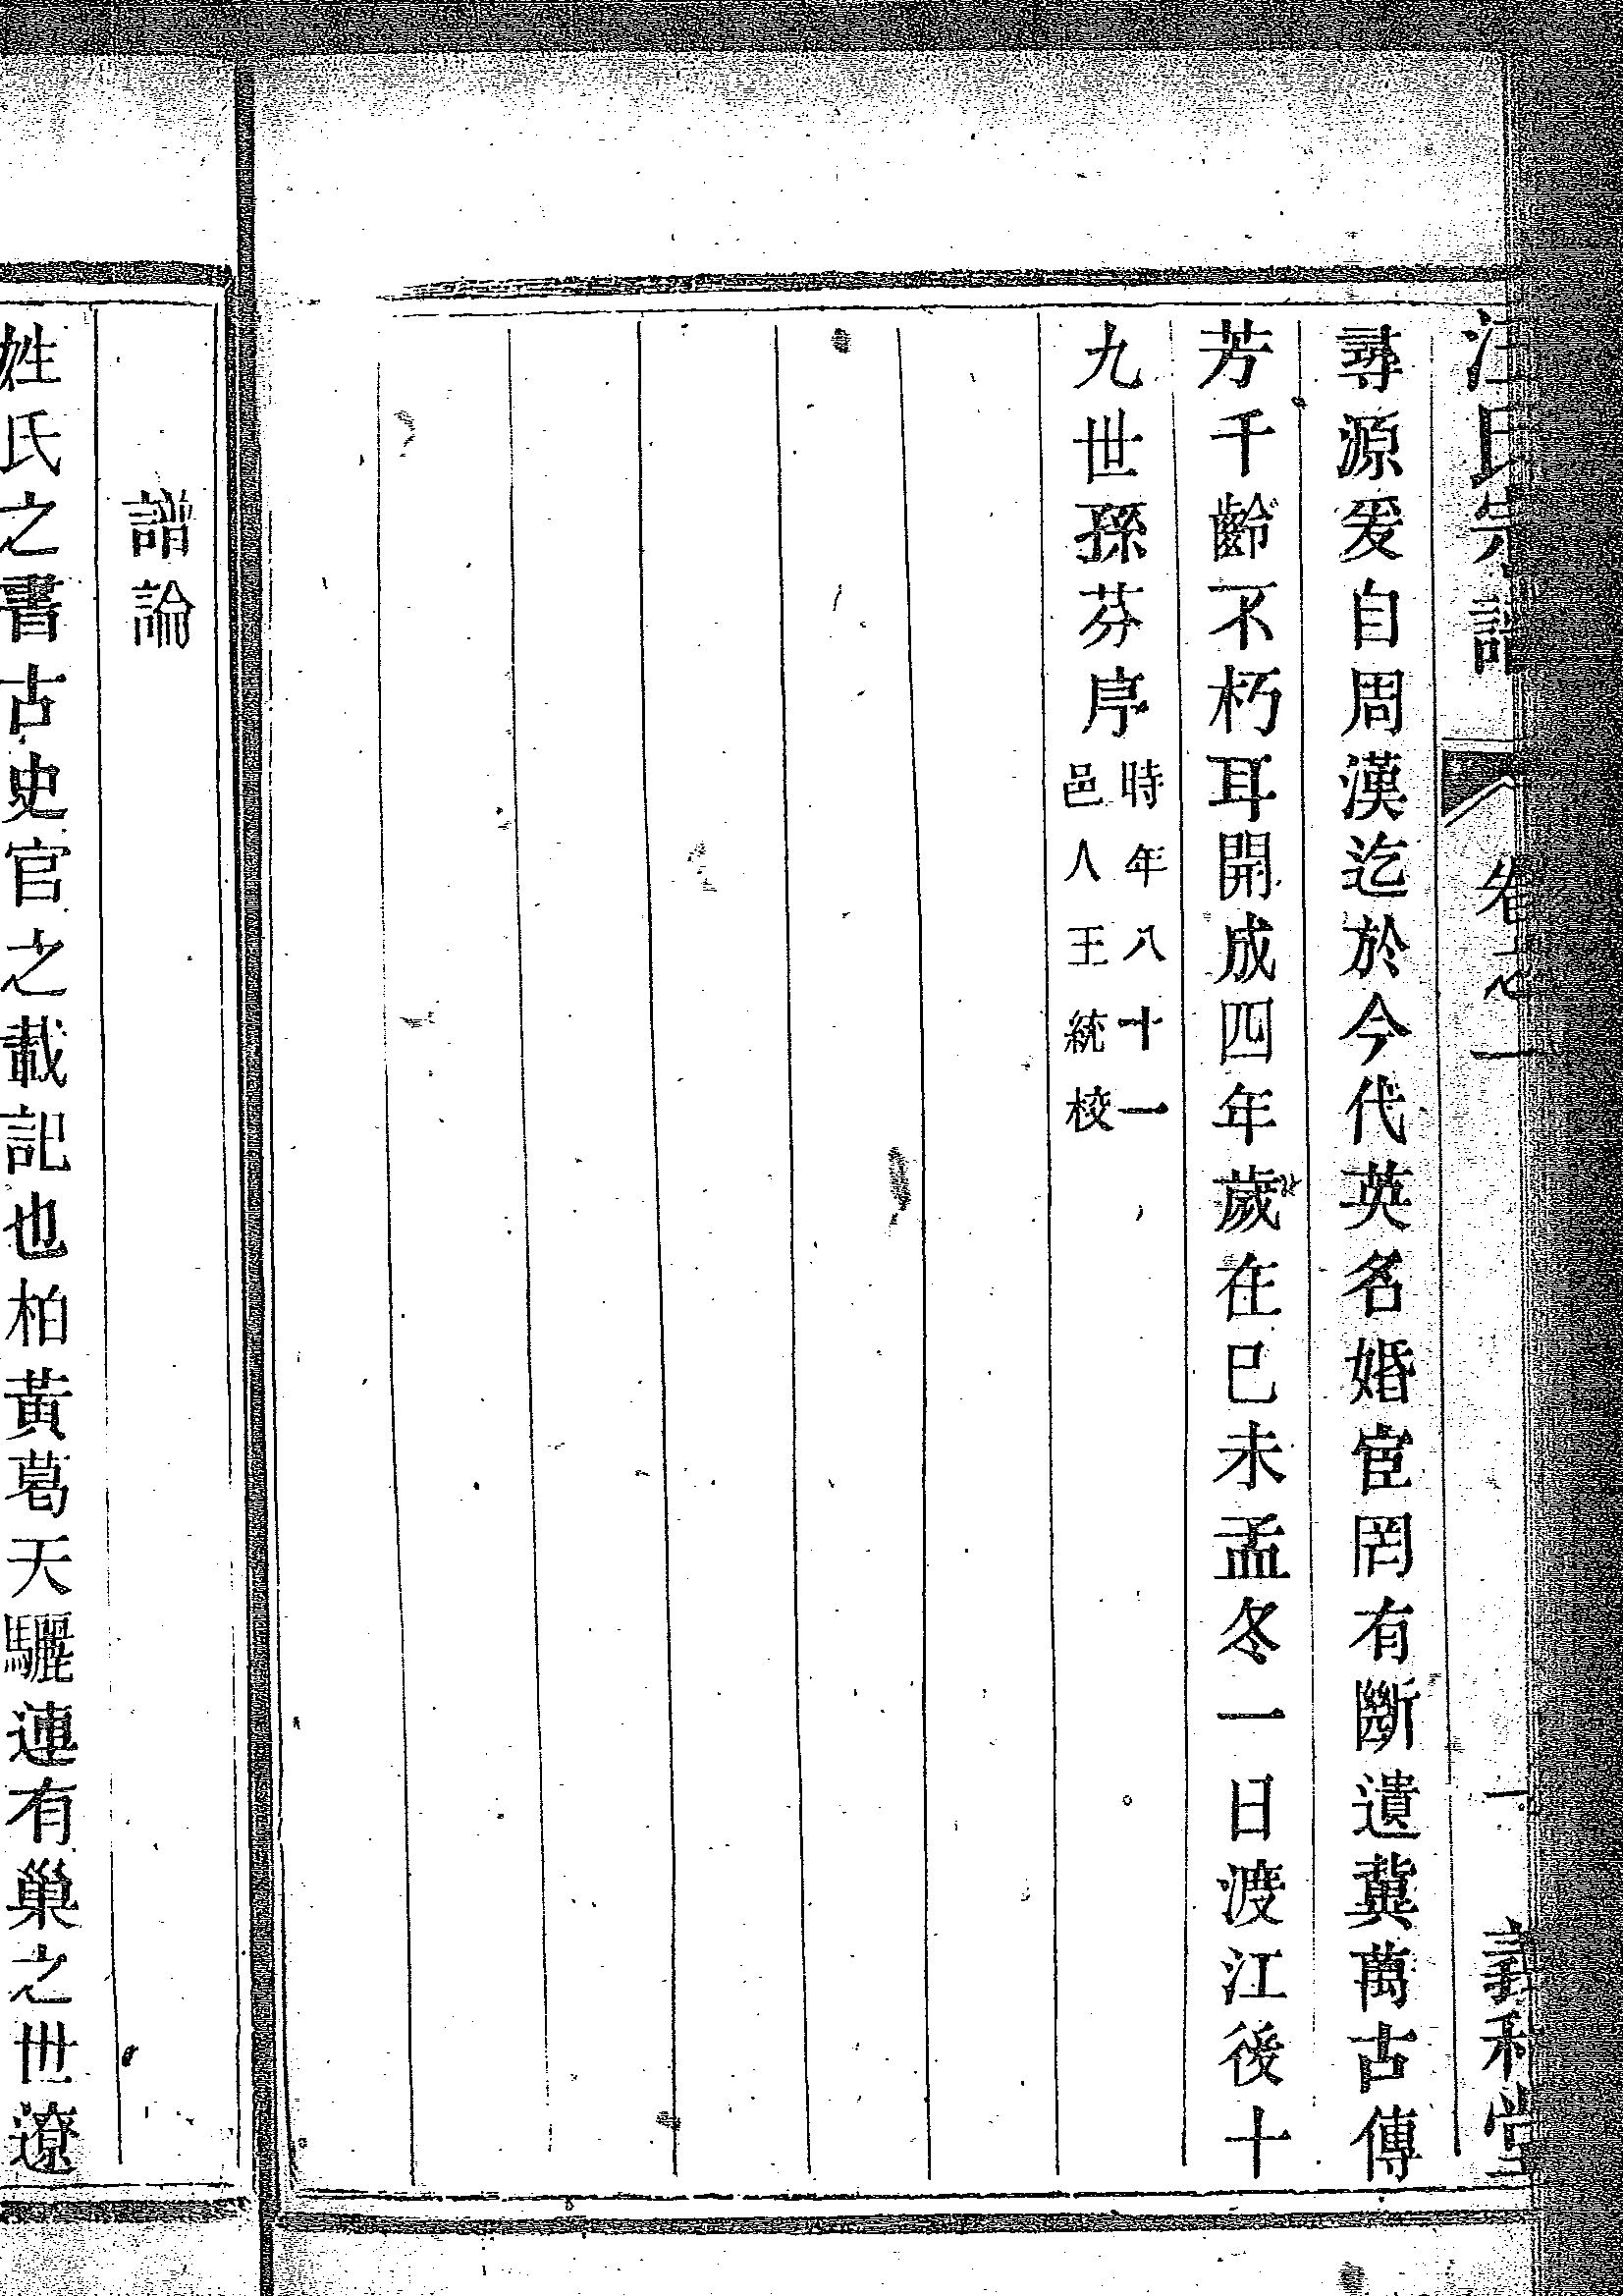 汪氏宗譜 卷之一 一 義和堂
尋源爰自周漢迄於今代英名婚宦罔有斷遺冀萬古傳
芳千齡不朽耳開成四年歲在巳未孟冬一日渡江後十
九世孫芬序
時年八十一
邑人王統校
譜論
姓氏之書古史官之載記也栢黃葛天驪連有巢之世遼